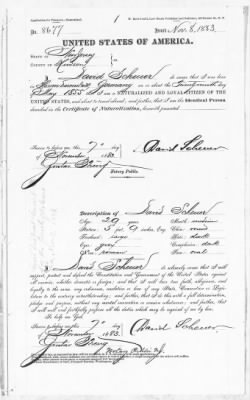 No. 8677
Issued Nov. 8, 1883
UNITED STATES OF AMERICA.
STATE OF New Jersey
COUNTY OF Hudson
I David Scheuer do swear that I was born
in Germany on or about the
May 1855 that I am a NATURALIZED AND LOYAL CITIZEN OF THE
UNITED STATES, and about to travel abroad; and further, that I am the Identical Person
described in the Certificate of Naturalization, herewith presented.
Sworn to before me, this 7th day
of November 1883
David Scheuer
Notary Public.
Description of David Scheuer
Age: 29 years
Mouth: medium
Stature: 5 ft. 9 inches, Eng.
Chin: round
Forehead: large
Hair: dark
Eyes: gray
Complexion: dark
Nose: roman
Face: oval
I David Scheuer do solemnly swear that I will
support, protect and defend the Constitution and Government of the United States against
all enemies, whether domestic or foreign; and that I will bear true faith, allegiance, and
loyalty to the same, any ordinance, resolution or law of any State, Convention or Legis-
lature to the contrary notwithstanding; and further, that I do this with a full determination,
pledge and purpose, without any mental reservation or evasion whatsoever; and further, that
I will well and faithfully perform all the duties which may be required of me by law.
So help me God.
Sworn to before me, this 7th day
of November 1883.
David Scheuer
Notary Public